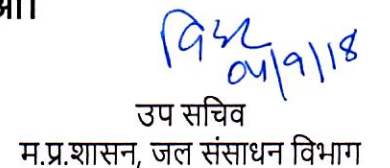 04/9/18
उप सचिव
म.प्र.शासन, जल संसाधन विभाग